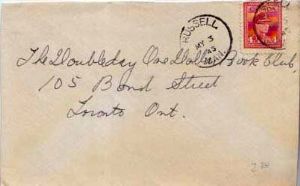 RUSSELL
MY 3
45
MAN.
4 4
The Doubleday One Dollar Book Club
105 Bond Street
Toronto Ont.